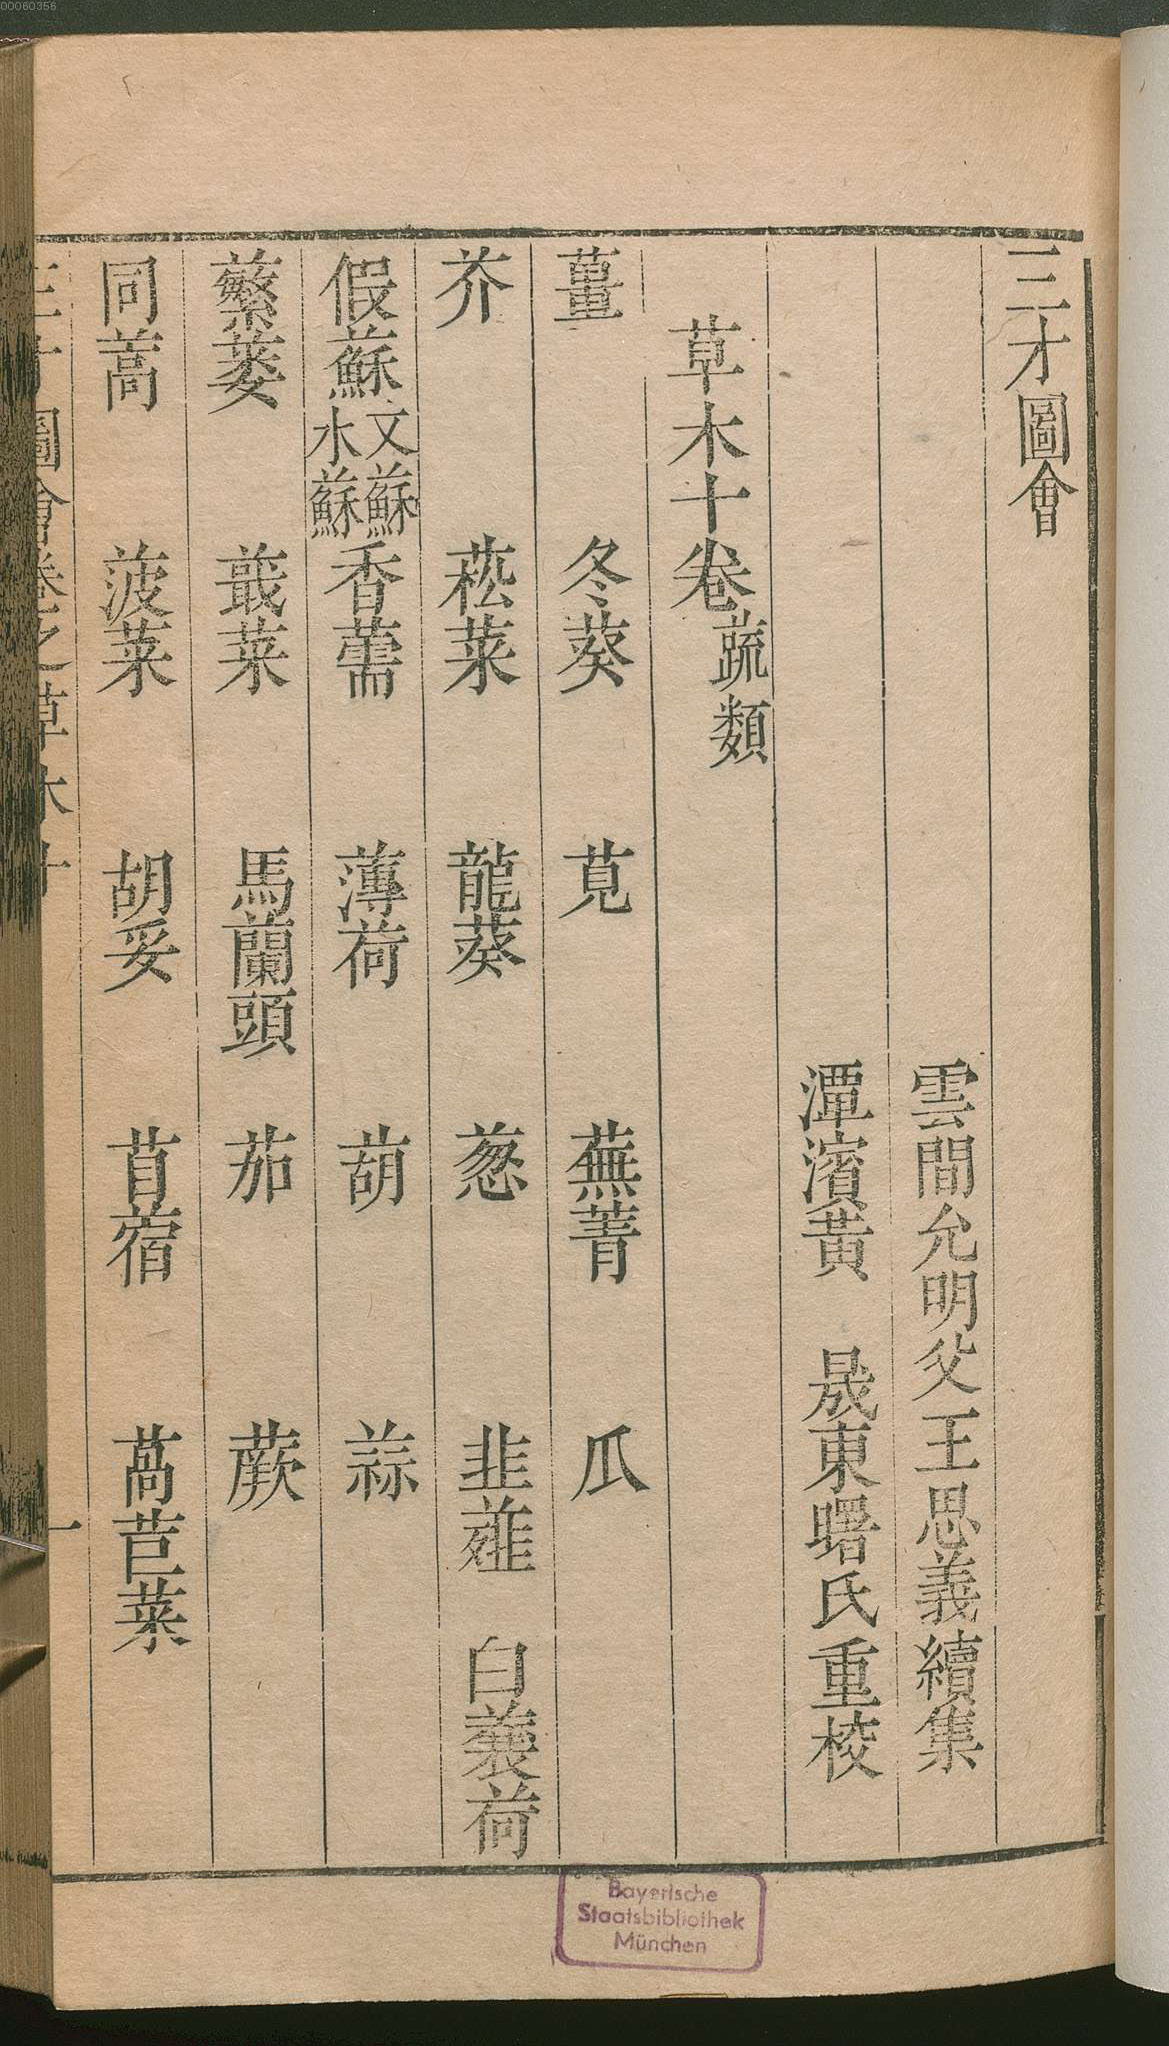 三才圖會
雲間允明父王思義續集
潭濱黃 晟東曙氏重校
草木十卷蔬類
薑 冬葵 莧 蕪菁 瓜
芥 菘菜 龍葵 蔥 韭薤 白蘘荷
假蘇文蘇水蘇 香薷 薄荷 葫 蒜
蘩蔞 蕺菜 馬蘭頭 茄 蕨
同蒿 菠菜 胡荽 苜蓿 萵苣菜
三才圖會卷之草木十 一
Bayerische
Staatsbibliothek
München
00060356